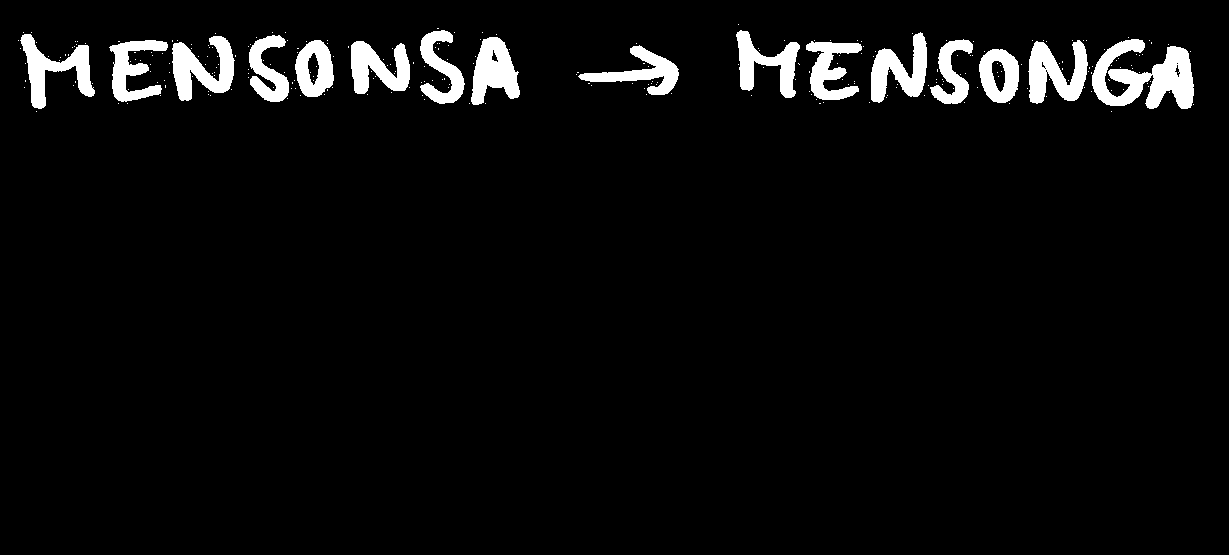 MENSONSA → MENSONGA